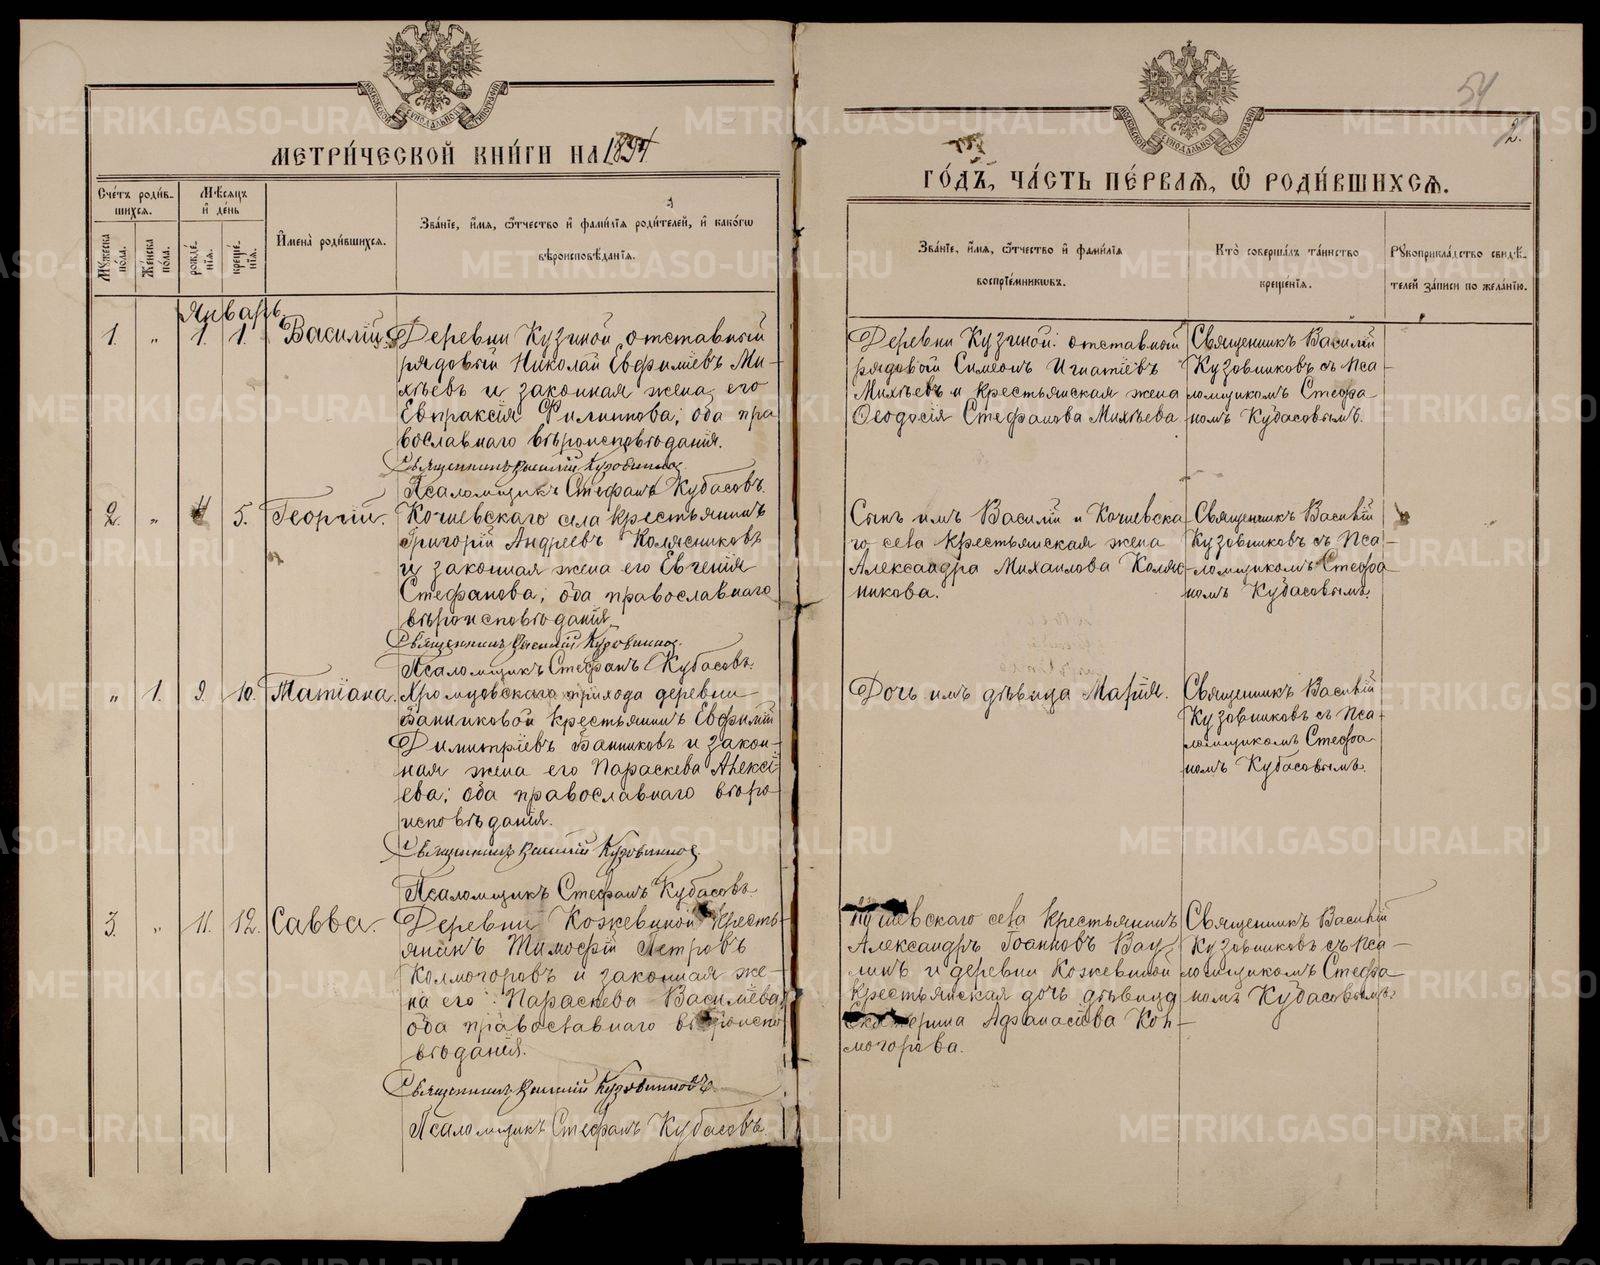 МЕТРИ́ЧЕСКОЙ КНИ́ГИ НА 1894
Сче́тъ роди́в-
шихся.
Мѣсяцъ
и де́нь
Му́жеска по́ла.
Же́нска по́ла.
рожде́нія.
креще́нія.
И́мена роди́вшихся.
Зва́ніе, и́мя, ѻ҆́тчество и фами́лія роди́телей, и како́гѡ
вѣроисповѣ́данія.
Январь.
1. " 1. 1. Василій.
Деревни Кузиной отставный
рядовый Николай Евфиміевъ Ми-
хѣевъ и законная жена его
Евпраксія Филиппова; оба пра
вославнаго вѣроисповѣданія.
Священникъ Василій Кузовников
Псаломщикъ Стефанъ Кубасовъ.
2. " 4 5. Георгій.
Кочневскаго села крестьянинъ
Григорій Андреевъ Колясниковъ
и законная жена его Евгенія
Стефанова; оба православнаго
вѣроисповѣданія
Священникъ Василій Кузовников
Псаломщикъ Стефанъ Кубасовъ.
" 1. 9. 10. Татіана.
Хромцовскаго прихода деревни
Банниковой крестьянинъ Евфимій
Димитріевъ Банниковъ и закон-
ная жена его Параскева Алексі
ева; оба православнаго вѣро-
исповѣданія.
Священникъ Василій Кузовников
Псаломщикъ Стефанъ Кубасовъ
3. " 11. 12. Савва.
Деревни Кожевиной кресть-
янинъ Тимофей Петровъ
Колмогоровъ и законная же-
на его Параскева Василіева
оба православнаго вѣроиспо
вѣданія.
Священникъ Василій Кузовниковъ
Псаломщикъ Стефанъ Кубасовъ
54
2.
ГО́ДЪ, ЧА́СТЬ ПЕ́РВАЯ, Ѡ҆ РОДИ́ВШИХСЯ.
Зва́ніе, и́мя, ѻ҆́тчество и фами́лія
воспріе́мникѡвъ.
Кто̀ соверша́лъ та́инство
креще́нія.
Рукоприкла́дство свидѣ́-
телей за́писи по жела́нію.
Деревни Кузиной: отставный
рядовой Симеонъ Игнатіевъ
Михѣевъ и крестьянская жена
Ѳеодосія Стефанова Михѣева
Священникъ Василій
Кузовниковъ съ Пса-
ломщикомъ Стефа-
номъ Кубасовымъ.
Сынъ имъ Василій и Кочневска
го села крестьянская жена
Александра Михаилова Коляс-
никова.
Священникъ Василій
Кузовниковъ съ Пса-
ломщикомъ Стефа
номъ Кубасовымъ.
Дочь имъ дѣвица Марія.
Священникъ Василій
Кузовниковъ съ Пса-
ломщикомъ Стефа-
номъ Кубасовымъ.
села крестьянинъ
Александръ Іоанновъ Вау
линъ и деревни Кожевиной
крестьянская дочь дѣвица
Екатерина Афанасіева Кол-
могорова.
Священникъ Василій
Кузовниковъ съ Пса-
ломщикомъ Стефа
номъ Кубасовымъ.
METRIKI.GASO-URAL.RU